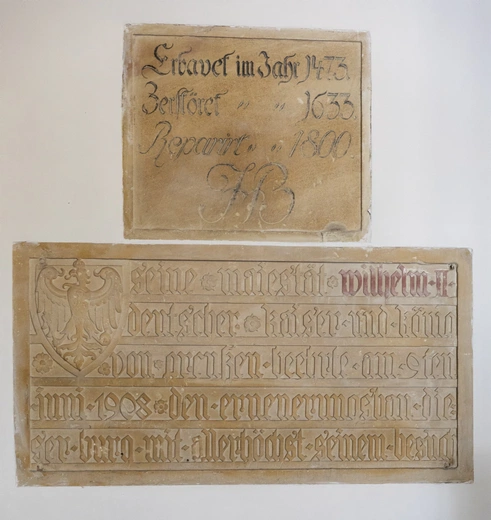 Erbavet im Jahr 1473.
Zerstöret " " 1633.
Reparirt " " 1800
HB
seine · maiestät · wilhelm · II ·
deutscher · kaiser · und · könig
· von · preußen · beehrte · am · 9ten
· juni · 1908 · den · erneuerungsbau · die=
ser · burg · mit · allerhöchst · seinem · besuch